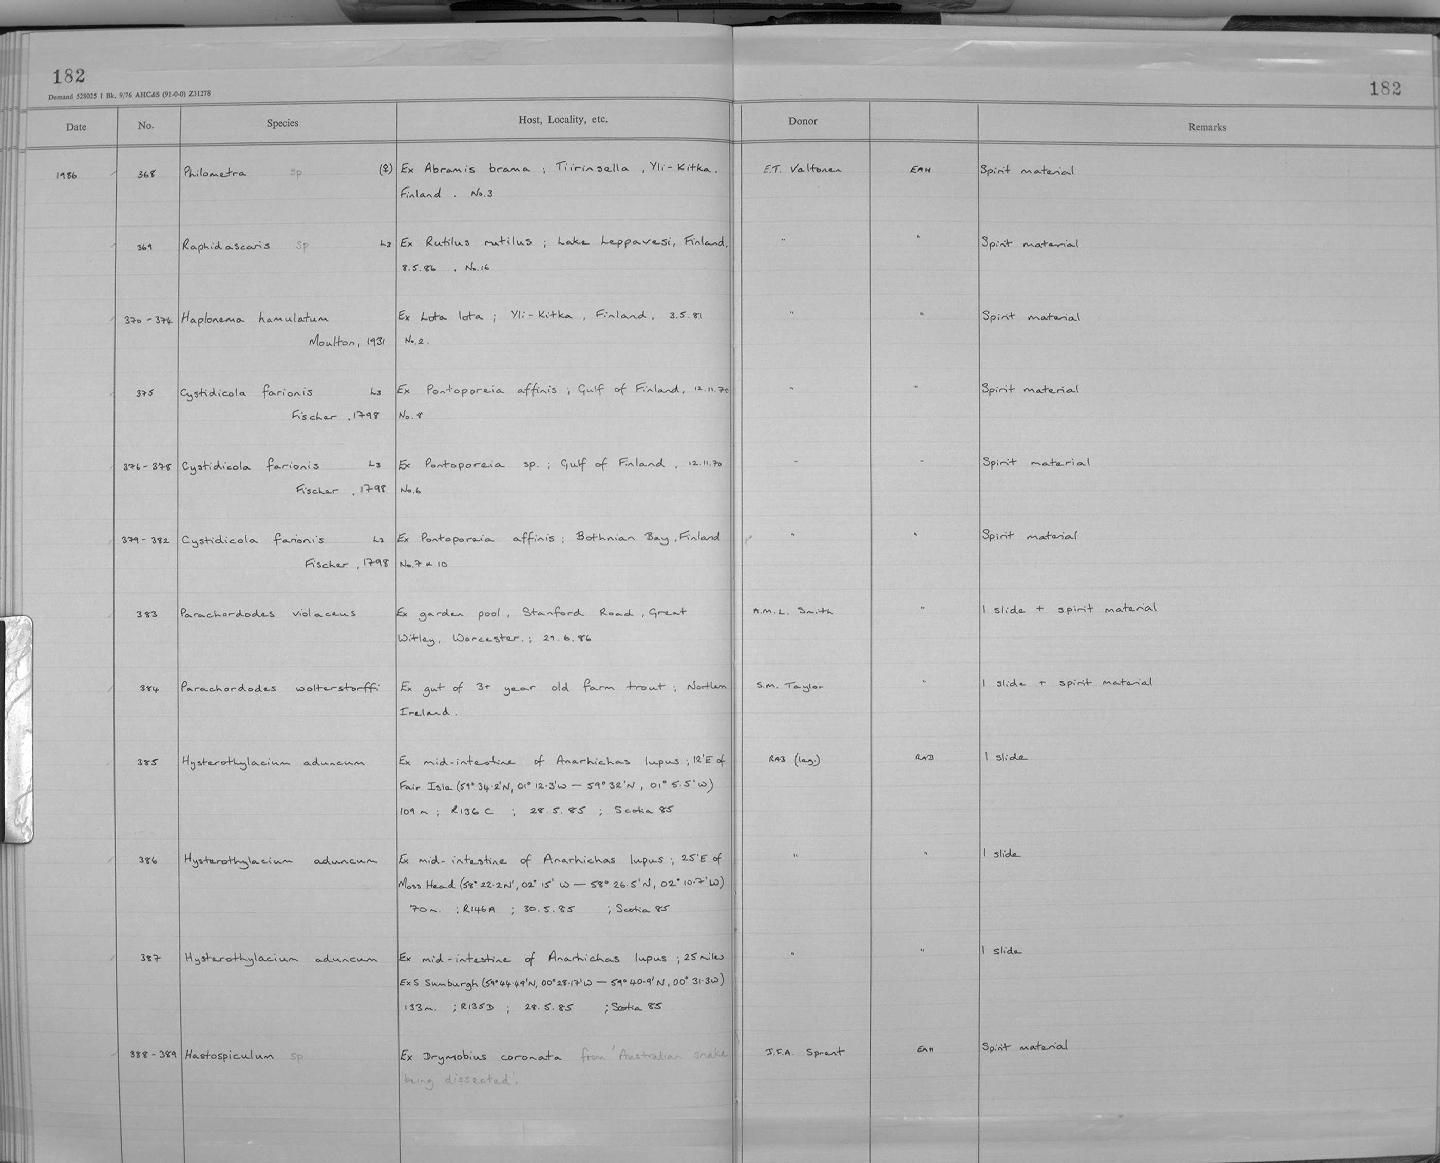 182
182
Demand 528025 1 Bk. 9/76 AHC&S (91-0-0) Z31278
Date No. Species Host, Locality, etc. Donor Remarks
1986 368 Philometra sp (♀) Ex Abramis brama ; Tiirinsella , Yli-Kitka, E.T. Valtonen EAH Spirit material
Finland . No.3
369 Raphidascaris sp L2 Ex Rutilus rutilus ; Lake Leppavesi, Finland, " " Spirit material
8.5.86 . No.16
370-374 Haplonema hamulatum Ex Lota lota ; Yli-Kitka , Finland , 3.5.81 " " Spirit material
Moulton, 1931 No.2.
375 Cystidicola farionis L3 Ex Pontoporeia affinis ; Gulf of Finland, 12.11.70 " " Spirit material
Fischer , 1798 No.8
376-378 Cystidicola farionis L3 Ex Pontoporeia sp. ; Gulf of Finland , 12.11.70 " " Spirit material
Fischer , 1798 No.6
379-382 Cystidicola farionis L3 Ex Pontoporeia affinis ; Bothnian Bay , Finland " " Spirit material
Fischer , 1798 No.7 & 10
383 Parachordodes violaceus Ex garden pool , Stanford Road , Great A.M.L. Smith " 1 slide + spirit material
Witley, Worcester. ; 29.6.86
384 Parachordodes wolterstorffi Ex gut of 3+ year old farm trout ; Northern S.M. Taylor " 1 slide + spirit material
Ireland.
385 Hysterothylacium aduncum Ex mid-intestine of Anarhichas lupus ; 12'E of RAB (leg.) RAB 1 slide
Fair Isle (59° 34.2'N, 01° 12.3'W — 59° 32'N, 01° 5.5'W)
109 m ; R136C ; 28.5.85 ; Scotia 85
386 Hysterothylacium aduncum Ex mid-intestine of Anarhichas lupus ; 25'E of " " 1 slide
Moss Head (58° 22.2N', 02° 15' W — 58° 26.5'N, 02° 10.7'W)
70m. ; R146A ; 30.5.85 ; Scotia 85
387 Hysterothylacium aduncum Ex mid-intestine of Anarhichas lupus ; 25 miles " " 1 slide
ExS Sumburgh (59° 44.49'N, 00° 28.17'W — 59° 40.9'N, 00° 31.3W)
133m. ; R135D ; 28.5.85 ; Scotia 85
388-389 Hastospiculum sp Ex Drymobius coronata from 'Australian snake J.F.A. Sprent EAH Spirit material
being dissected'.